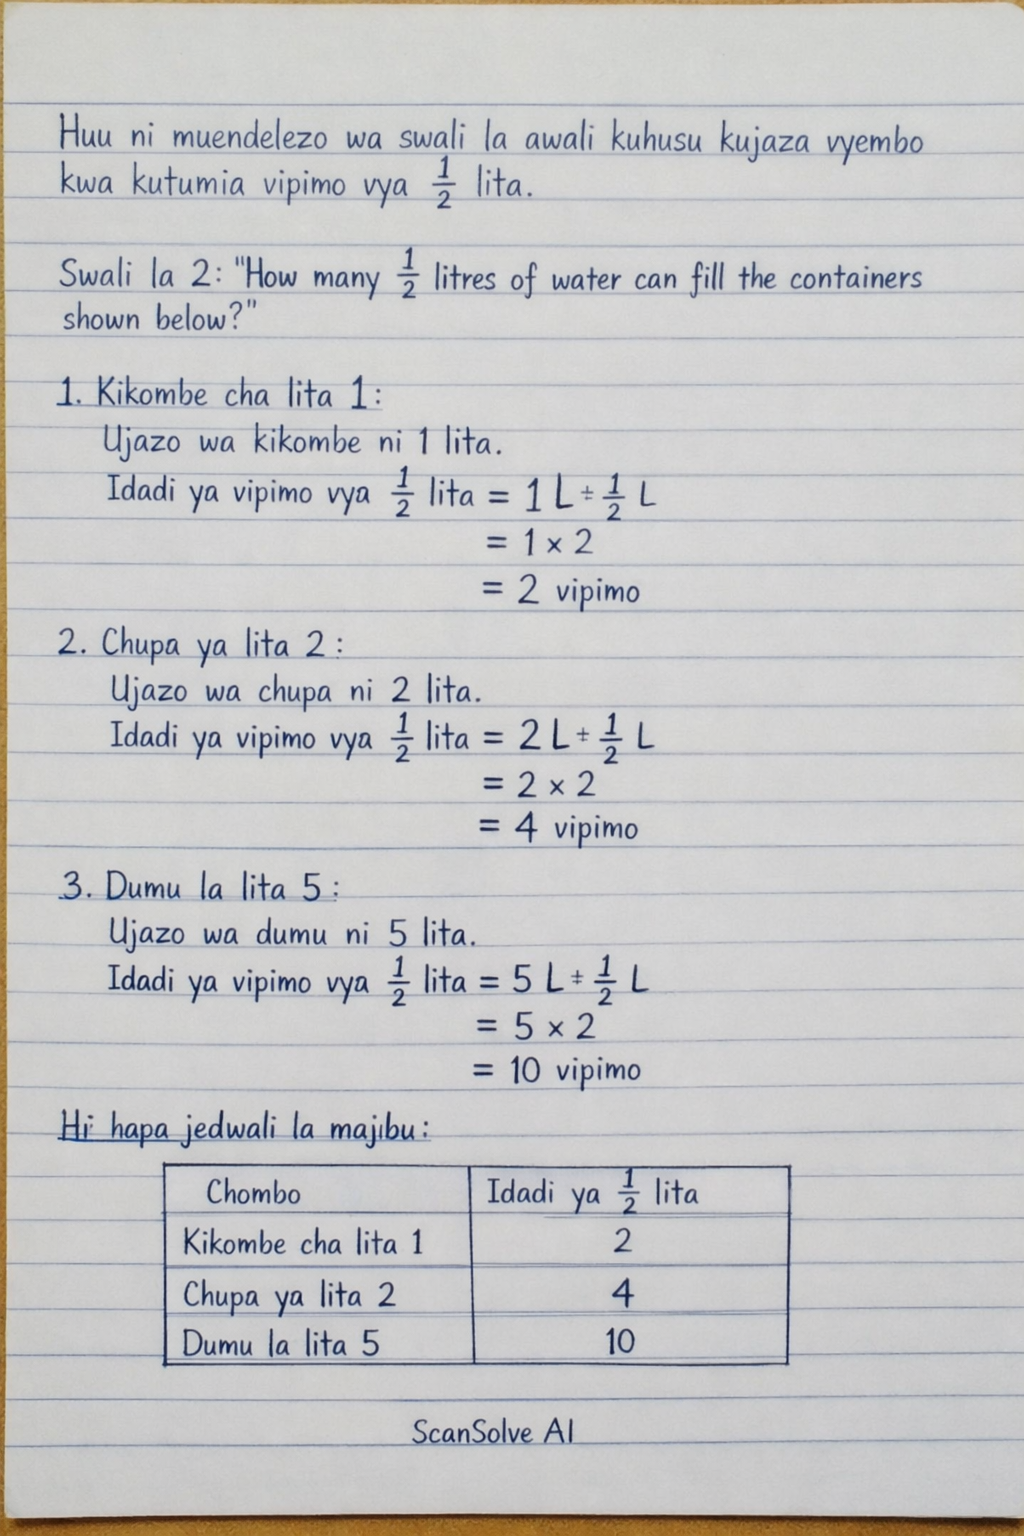 Huu ni muendelezo wa swali la awali kuhusu kujaza vyembo
kwa kutumia vipimo vya 1/2 lita.
Swali la 2: "How many 1/2 litres of water can fill the containers
shown below?"
1. Kikombe cha lita 1:
Ujazo wa kikombe ni 1 lita.
Idadi ya vipimo vya 1/2 lita = 1 L ÷ 1/2 L
= 1 × 2
= 2 vipimo
2. Chupa ya lita 2:
Ujazo wa chupa ni 2 lita.
Idadi ya vipimo vya 1/2 lita = 2 L ÷ 1/2 L
= 2 × 2
= 4 vipimo
3. Dumu la lita 5:
Ujazo wa dumu ni 5 lita.
Idadi ya vipimo vya 1/2 lita = 5 L ÷ 1/2 L
= 5 × 2
= 10 vipimo
Hi hapa jedwali la majibu:
Chombo Idadi ya 1/2 lita
Kikombe cha lita 1 2
Chupa ya lita 2 4
Dumu la lita 5 10
ScanSolve AI